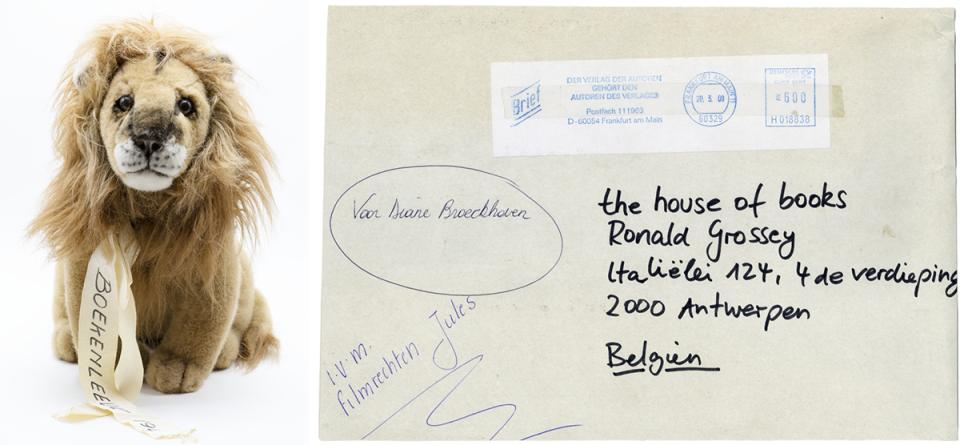 BOEKENLEEUW '91
Brief
DER VERLAG DER AUTOREN
GEHÖRT DEN
AUTOREN DES VERLAGES
Postfach 111963
D-60054 Frankfurt am Main
FRANKFURT AM MAIN
60329
600
H 018838
Voor Diane Broeckhoven
the house of books
Ronald Grossey
Italiëlei 124, 4 de verdieping
2000 Antwerpen
Belgien
i.v.m.
filmrechten Jules